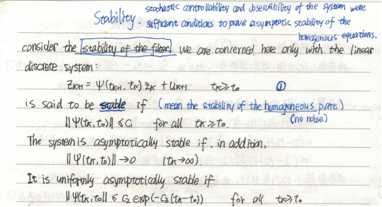 Stability. stochastic controllability and observability of the system were
sufficient conditions to prove asymptotic stability of the
homogeneous equations.
consider the stability of the filter, we are concerned here only with the linear
discrete system:
Zk+1 = Ψ(tk+1, tk) Zk + Uk+1 tk≥t0 ①
is said to be stable if (mean the stability of the homogeneous part)
(no noise)
‖Ψ(tk,t0)‖ ≤ C1 for all tk≥t0.
The system is asymptotically stable if, in addition,
‖Ψ(tk,t0)‖→0 (tk→∞)
It is uniformly asymptotically stable if
‖Ψ(tk,t0)‖ ≤ C2 exp(-C3(tk-t0)) for all tk≥t0